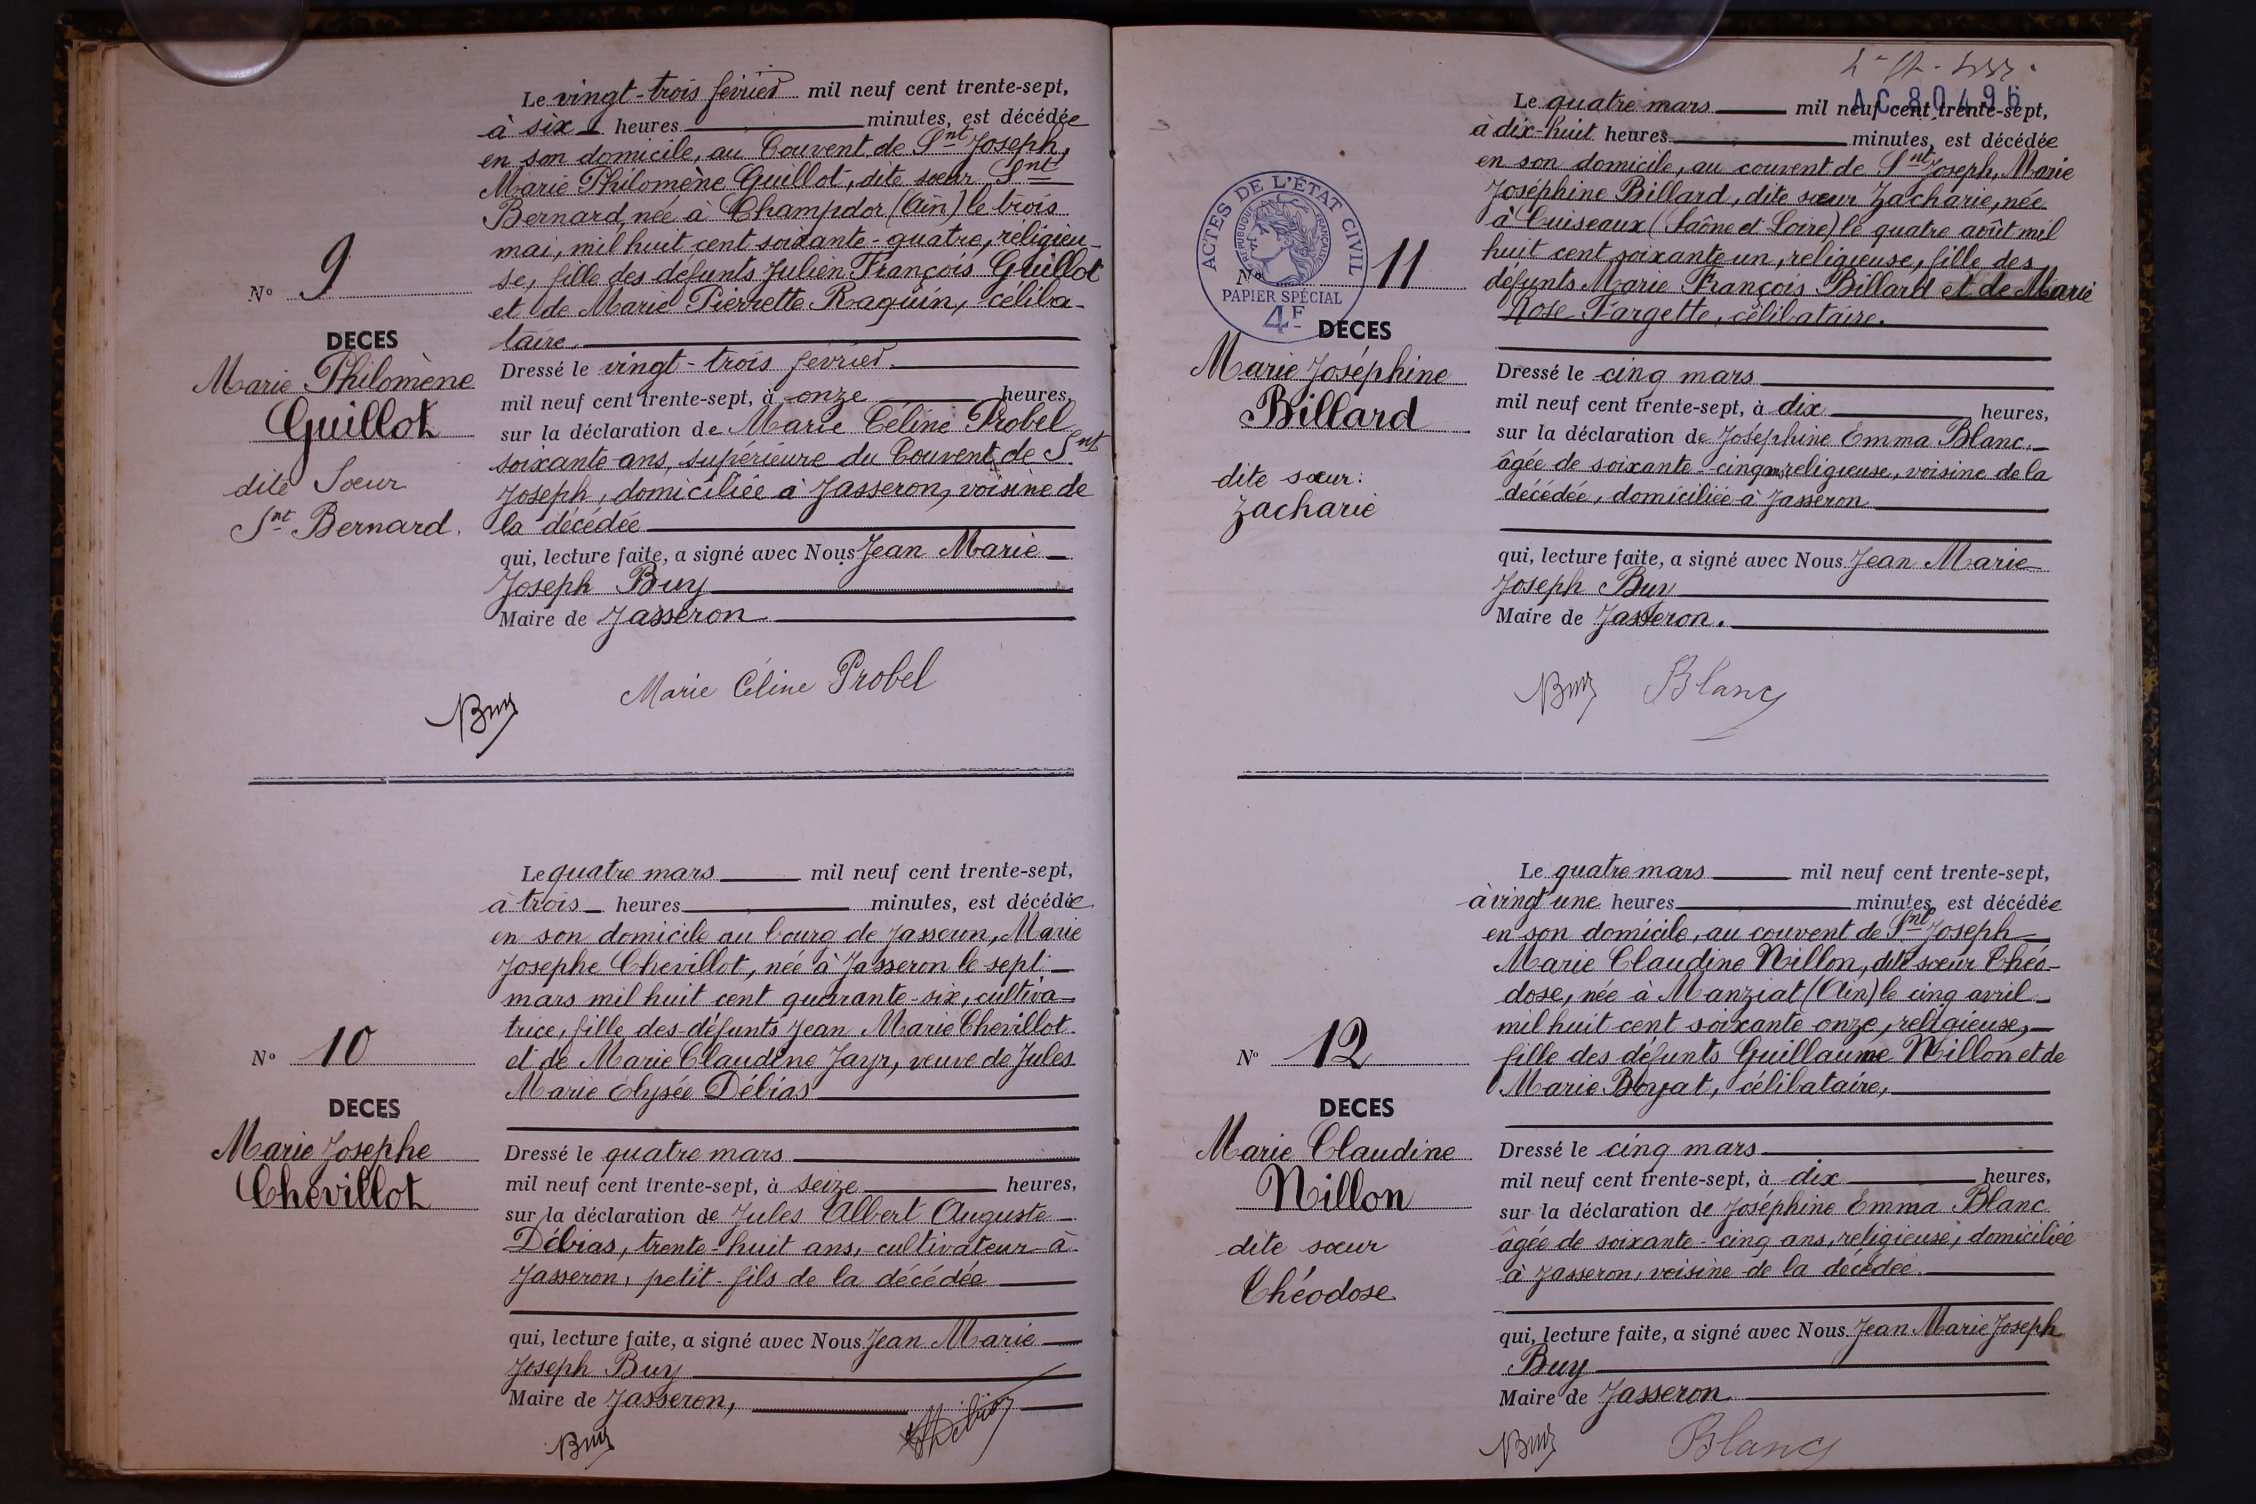 Le vingt-trois février mil neuf cent trente-sept,
à six heures minutes, est décédée
en son domicile, au Couvent de Snt Joseph,
Marie Philomène Guillot, dite sœur Snt
Bernard, née à Champdor (Ain) le trois
mai, mil huit cent soixante-quatre, religieu-
se, fille des défunts Julien François Guillot
et de Marie Pierrette Raquin, céliba-
taire.
No 9
DECES
Marie Philomène
Guillot
dite Sœur
Snt Bernard.
Dressé le vingt-trois février
mil neuf cent trente-sept, à onze heures,
sur la déclaration de Marie Céline Probel
soixante ans, supérieure du Couvent de Snt
Joseph, domiciliée à Jasseron, voisine de
la décédée
qui, lecture faite, a signé avec Nous Jean Marie
Joseph Buy
Maire de Jasseron
Buy Marie Céline Probel
Le quatre mars mil neuf cent trente-sept,
à trois heures minutes, est décédée
en son domicile au bourg de Jasseron, Marie
Josephe Chevillot, née à Jasseron le sept
mars mil huit cent quarante-six, cultiva-
trice, fille des défunts Jean Marie Chevillot
et de Marie Claudine Jayr, veuve de Jules
Marie Elysée Débias
No 10
DECES
Marie Josephe
Chevillot
Dressé le quatre mars
mil neuf cent trente-sept, à seize heures,
sur la déclaration de Jules Albert Auguste
Débias, trente-huit ans, cultivateur à
Jasseron, petit-fils de la décédée
qui, lecture faite, a signé avec Nous Jean Marie
Joseph Buy
Maire de Jasseron,
Buy Débias
AC 80496
Le quatre mars mil neuf cent trente-sept,
à dix-huit heures minutes, est décédée
en son domicile, au couvent de Snt Joseph, Marie
Joséphine Billard, dite sœur Zacharie, née
à Cuiseaux (Saône et Loire) le quatre août mil
huit cent soixante un, religieuse, fille des
défunts Marie François Billard et de Marie
Rose Fargette, célibataire.
ACTES DE L'ÉTAT CIVIL
RÉPUBLIQUE FRANÇAISE
PAPIER SPÉCIAL
4F
No 11
DECES
Marie Joséphine
Billard
dite sœur:
Zacharie
Dressé le cinq mars
mil neuf cent trente-sept, à dix heures,
sur la déclaration de Joséphine Emma Blanc,
âgée de soixante-cinq ans, religieuse, voisine de la
décédée, domiciliée à Jasseron
qui, lecture faite, a signé avec Nous Jean Marie
Joseph Buy
Maire de Jasseron.
Buy Blanc
Le quatre mars mil neuf cent trente-sept,
à vingt une heures minutes, est décédée
en son domicile, au couvent de Snt Joseph
Marie Claudine Nillon, dite sœur Théo-
dose, née à Manziat (Ain) le cinq avril
mil huit cent soixante onze, religieuse,
fille des défunts Guillaume Nillon et de
Marie Boyat, célibataire,
No 12
DECES
Marie Claudine
Nillon
dite sœur
Théodose
Dressé le cinq mars
mil neuf cent trente-sept, à dix heures,
sur la déclaration de Joséphine Emma Blanc
âgée de soixante-cinq ans, religieuse, domiciliée
à Jasseron, voisine de la décédée.
qui, lecture faite, a signé avec Nous Jean Marie Joseph
Buy
Maire de Jasseron
Buy Blanc